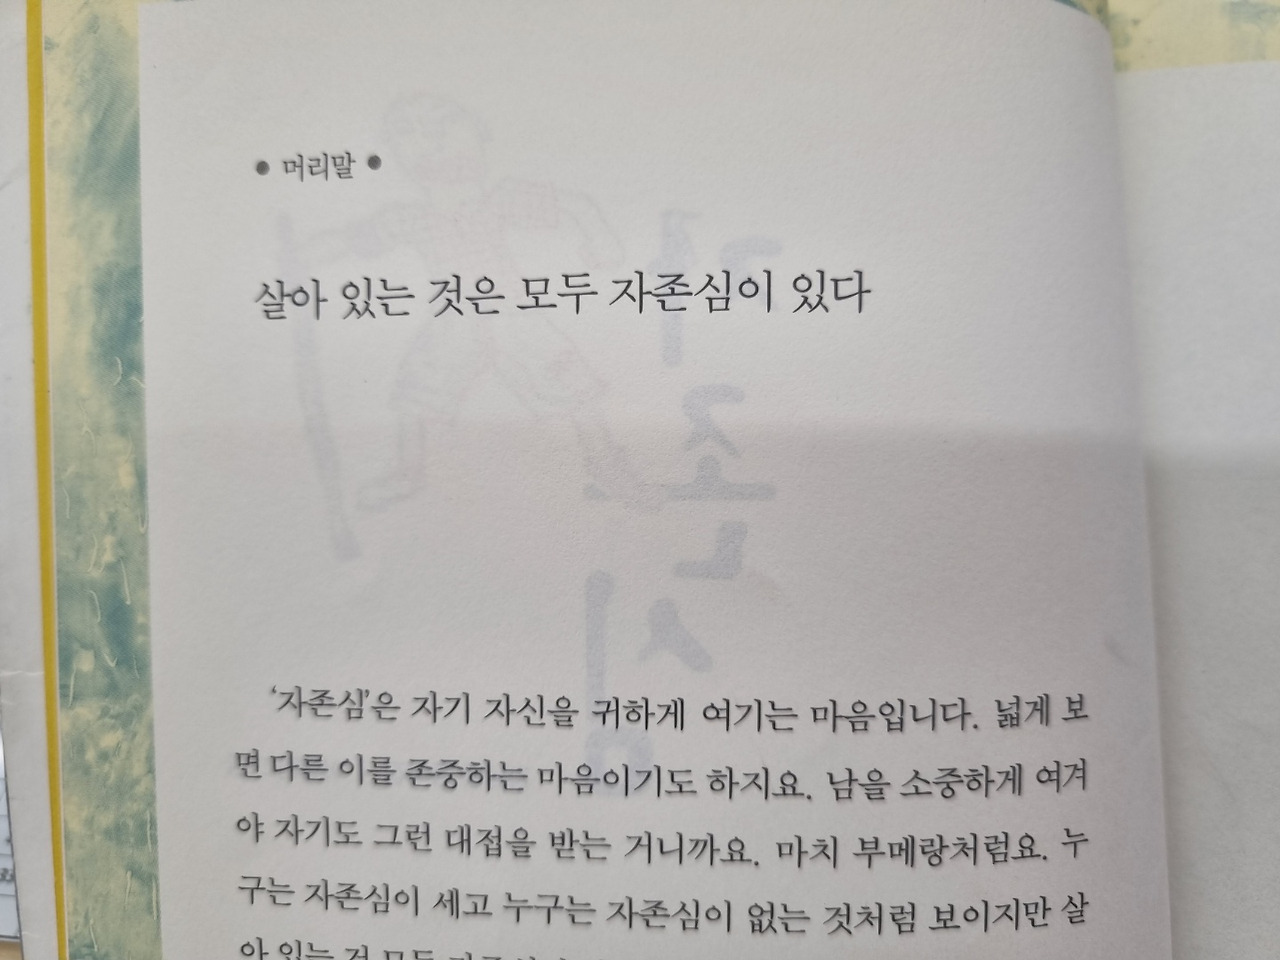 • 머리말 •
살아 있는 것은 모두 자존심이 있다
‘자존심’은 자기 자신을 귀하게 여기는 마음입니다. 넓게 보
면 다른 이를 존중하는 마음이기도 하지요. 남을 소중하게 여겨
야 자기도 그런 대접을 받는 거니까요. 마치 부메랑처럼요. 누
구는 자존심이 세고 누구는 자존심이 없는 것처럼 보이지만 살
아 있는 것 모두